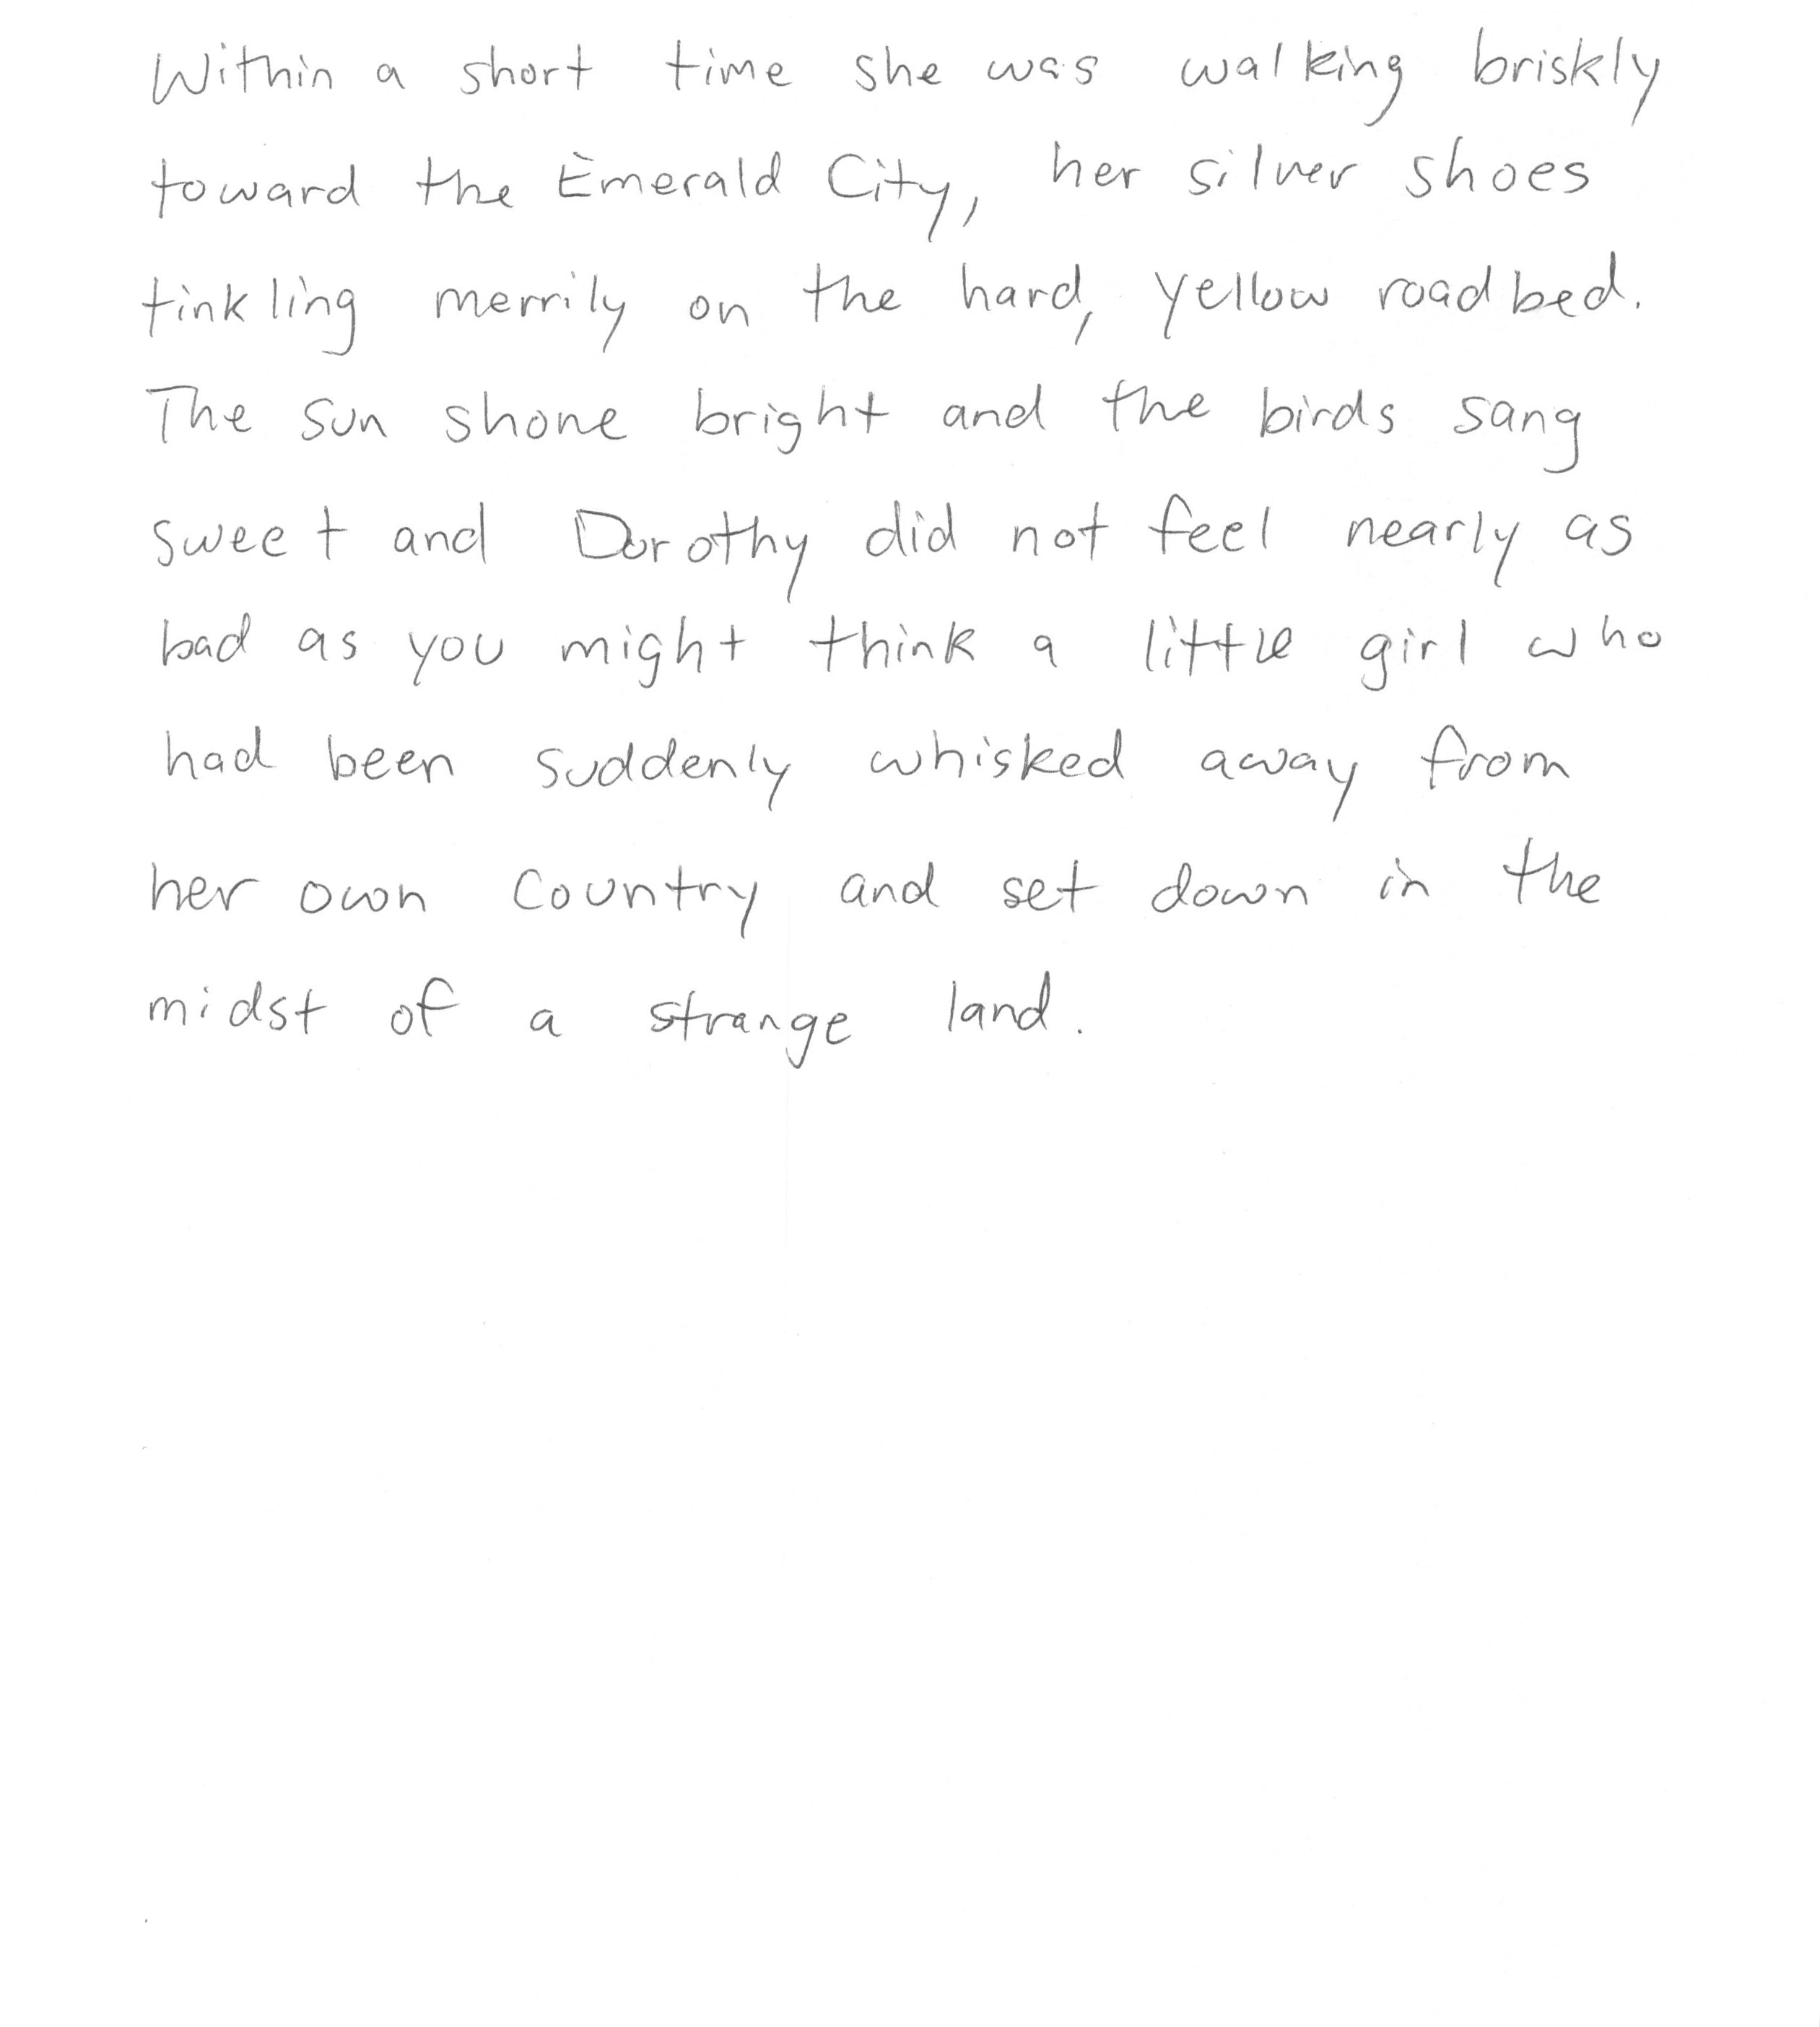 Within a short time she was walking briskly
toward the Emerald City, her silver shoes
tinkling merrily on the hard, yellow roadbed.
The sun shone bright and the birds sang
sweet and Dorothy did not feel nearly as
bad as you might think a little girl who
had been suddenly whisked away from
her own country and set down in the
midst of a strange land.